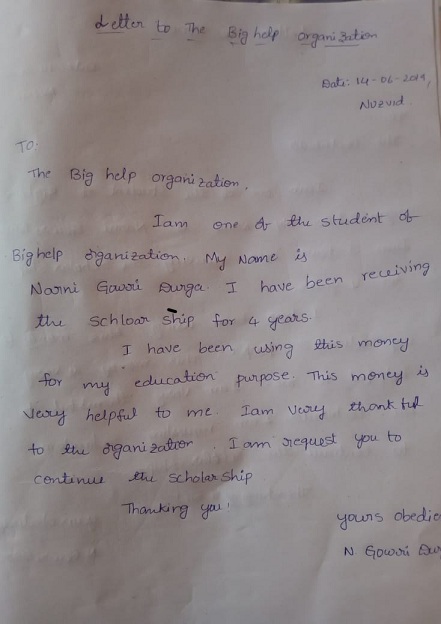 Letter to The Big help organization
Date: 14-06-2019,
Nuzvid.
TO.
The Big help organization,
Iam one of the student of
Big help organization. My Name is
Narni Gowri Durga. I have been receiving
the schloar ship for 4 years.
I have been using this money
for my education purpose. This money is
very helpful to me. Iam very thankful
to the organization. I am request you to
continue the scholarship
Thanking you!
yours obedie
N Gowri Dur